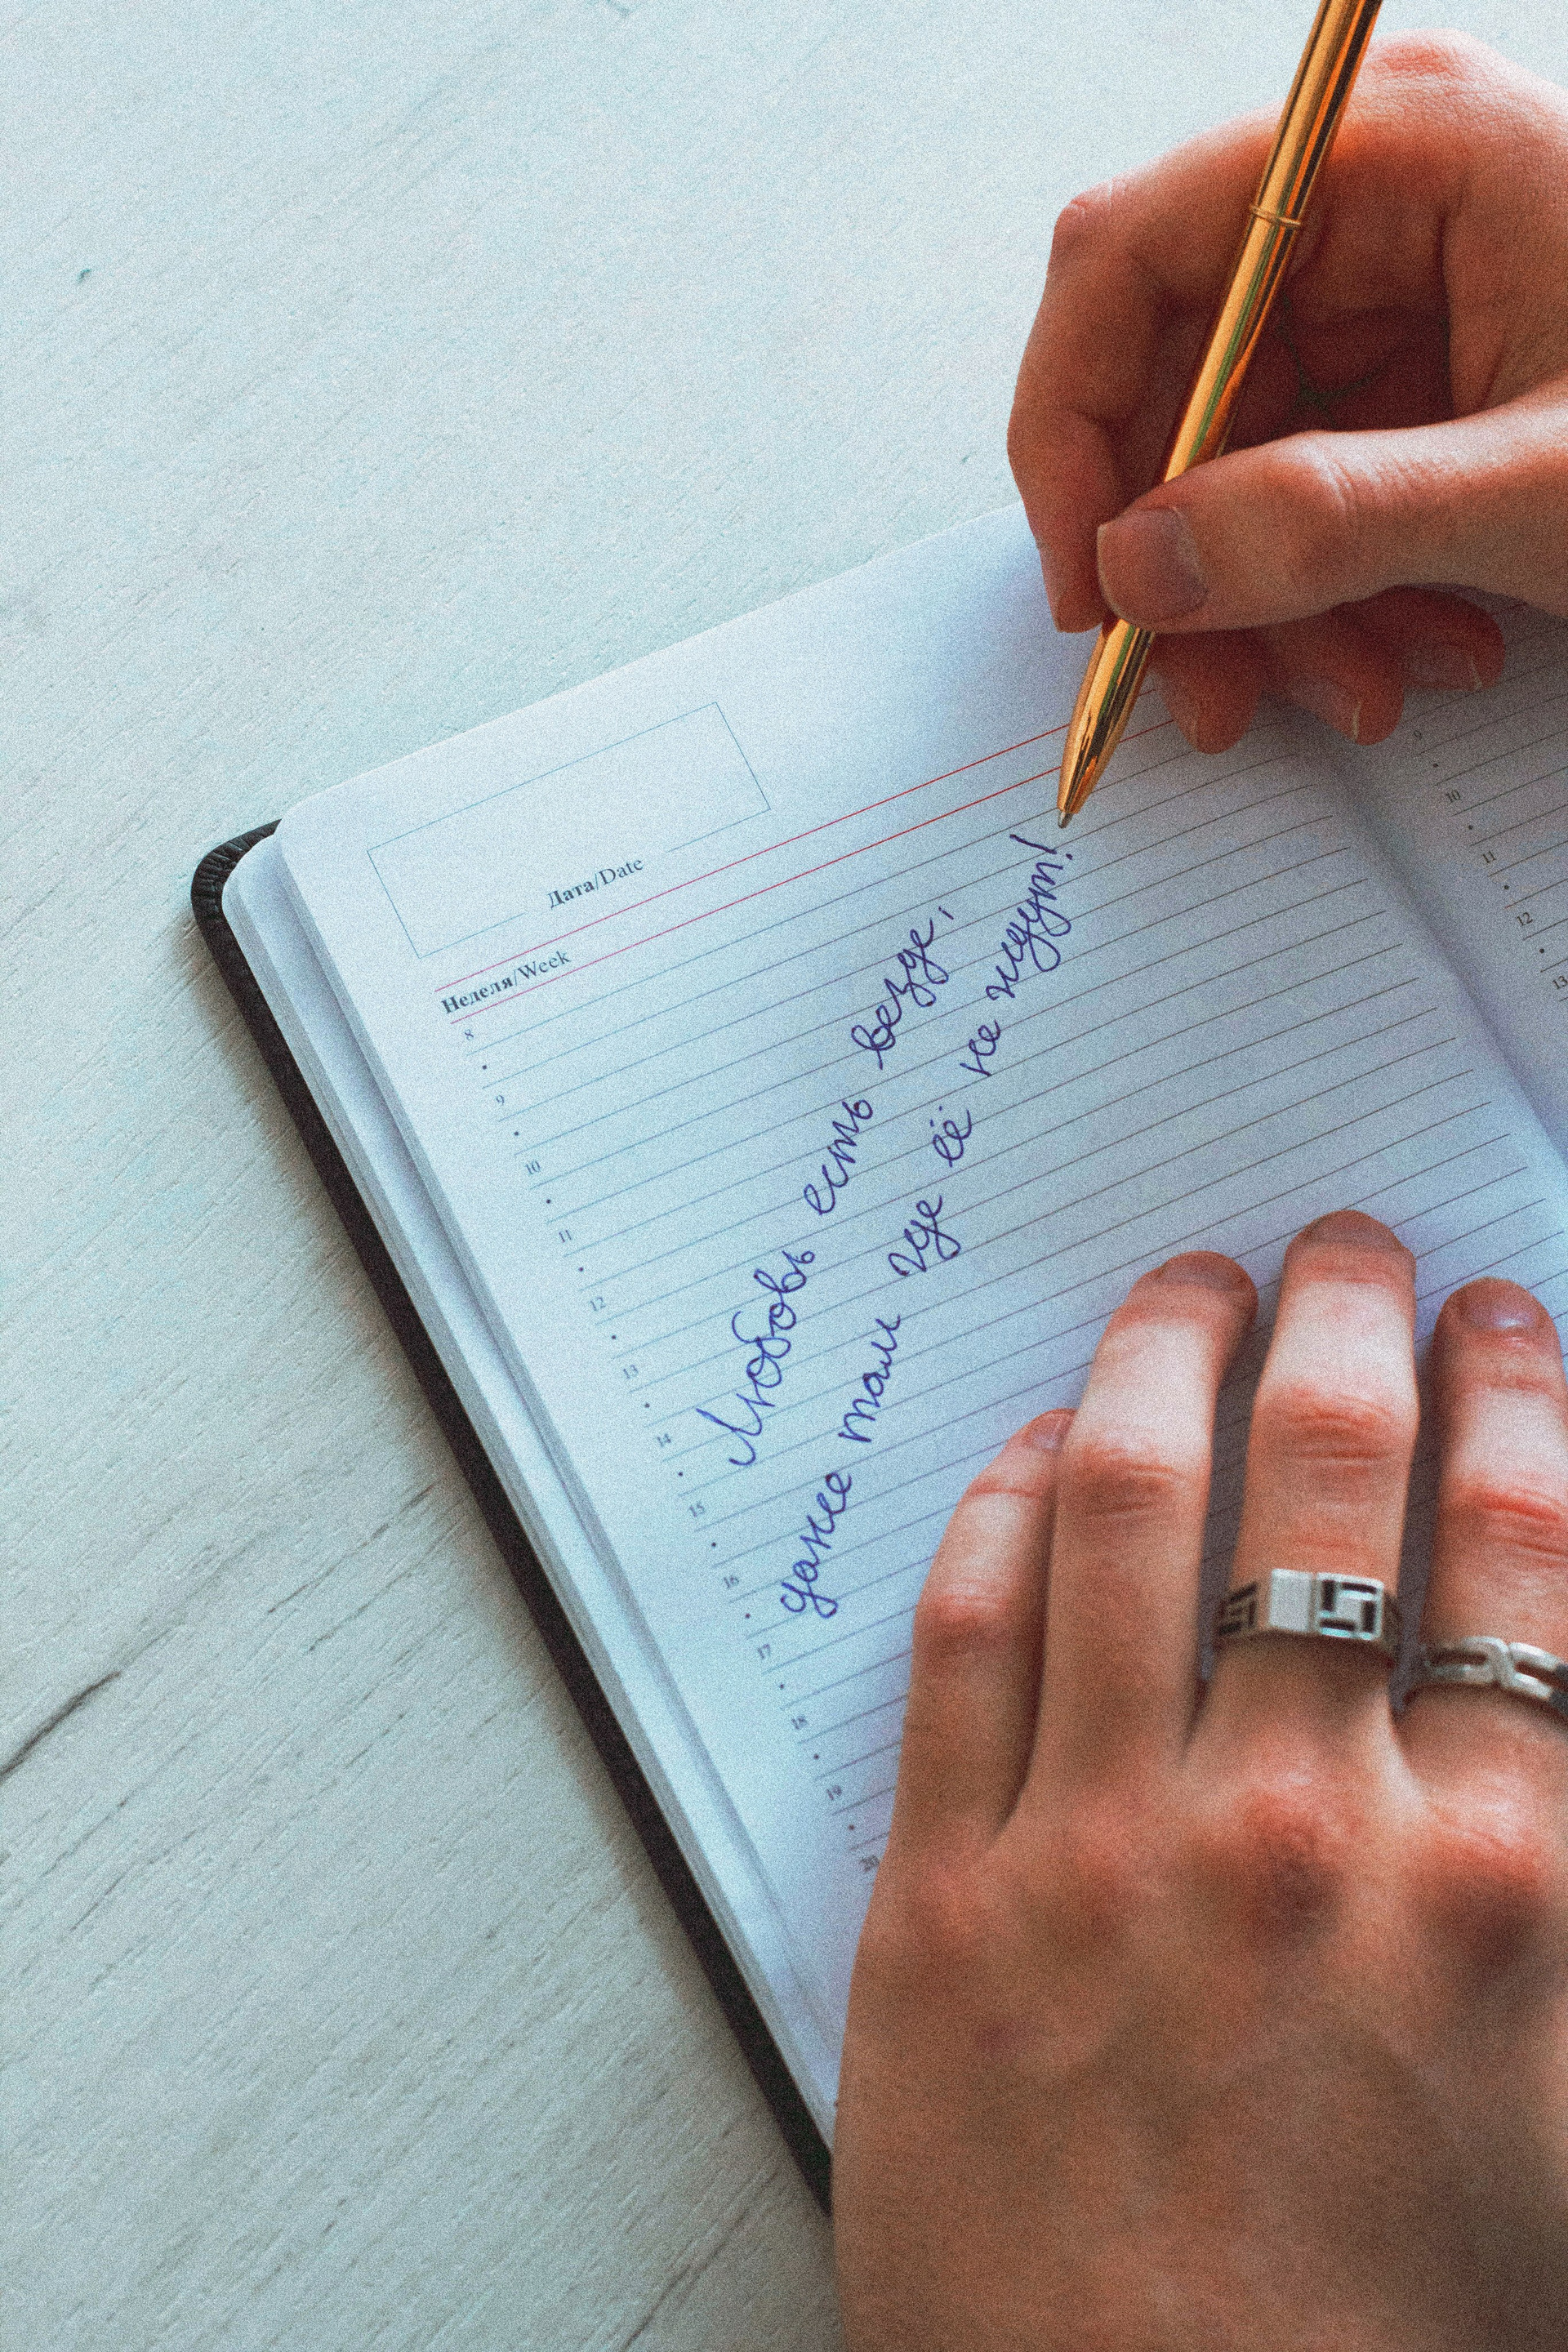 Дата/Date
Неделя/Week
8
9
10
11
12
13
14
15
16
17
18
19
20
Любовь есть везде,
даже там где её не ждут!
9
10
11
12
13